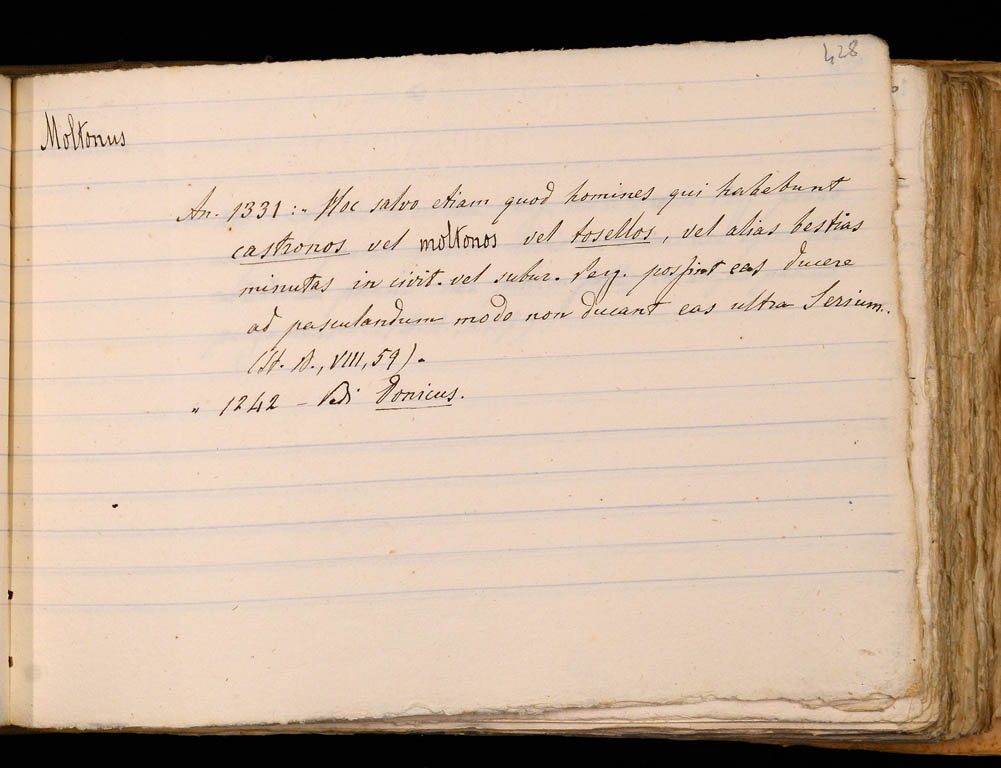 428
Moltonus
An. 1331:- Hoc salvo etiam quod homines qui habebunt
castronos vel moltonos vel tosellos, vel alias bestias
minutas in civit. vel subur. Perg. possint eas ducere
ad pasculandum modo non ducant eas ultra Serium..
(St. B., VIII, 59).
" 1242 - Vedi Donicus.